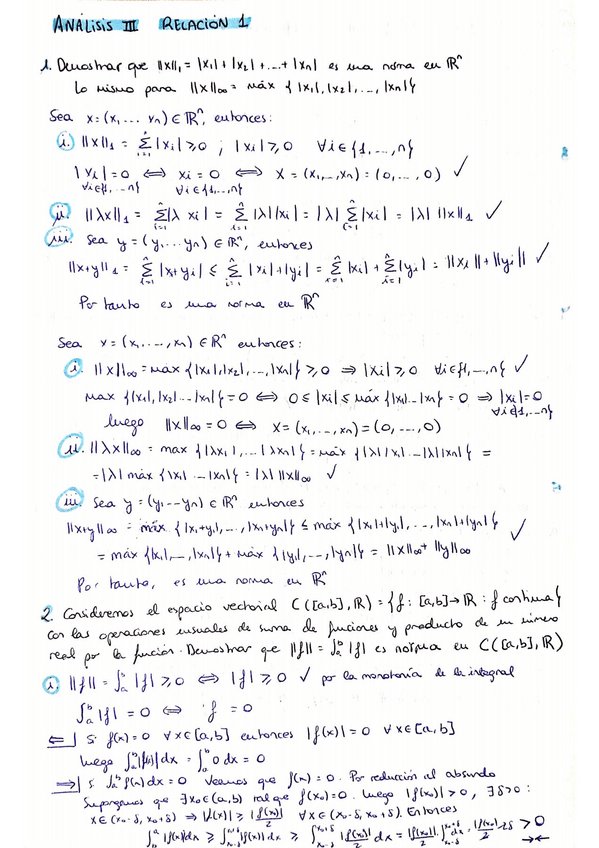 ANÁLISIS III RELACIÓN 1
1. Demostrar que ||x||₁ = |x₁| + |x₂| + ... + |xₙ| es una norma en ℝⁿ
Lo mismo para ||x||∞ = máx {|x₁|, |x₂|, ..., |xₙ|}
Sea x = (x₁ ... xₙ) ∈ ℝⁿ, entonces:
i. ||x||₁ = Σⁿᵢ₌₁ |xᵢ| ⩾ 0 ; |xᵢ| ⩾ 0 ∀i ∈ {1, ..., n}
|xᵢ| = 0 ⟺ xᵢ = 0 ⟺ x = (x₁, ..., xₙ) = (0, ..., 0) ✓
∀i∈{1, ... n} ∀i∈{1, ..., n}
ii. ||λx||₁ = Σⁿᵢ₌₁ |λ xᵢ| = Σⁿᵢ₌₁ |λ| |xᵢ| = |λ| Σⁿᵢ₌₁ |xᵢ| = |λ| ||x||₁ ✓
iii. Sea y = (y₁ ... yₙ) ∈ ℝⁿ, entonces
||x+y||₁ = Σⁿᵢ₌₁ |xᵢ+yᵢ| ≤ Σⁿᵢ₌₁ |xᵢ| + |yᵢ| = Σⁿᵢ₌₁ |xᵢ| + Σⁿᵢ₌₁ |yᵢ| = ||xᵢ|| + ||yᵢ|| ✓
Por tanto es una norma en ℝⁿ
Sea x = (x₁, ..., xₙ) ∈ ℝⁿ entonces:
i. ||x||∞ = máx {|x₁|, |x₂|, ..., |xₙ|} ⩾ 0 ⇒ |xᵢ| ⩾ 0 ∀i∈{1, ..., n} ✓
max {|x₁|, |x₂| ... |xₙ|} = 0 ⟺ 0 ≤ |xᵢ| ≤ máx {|x₁| ... |xₙ|} = 0 ⇒ |xᵢ| = 0
∀i∈{1, ... n}
luego ||x||∞ = 0 ⟺ x = (x₁, ..., xₙ) = (0, ..., 0)
ii. ||λx||∞ = max {|λx₁|, ... |λxₙ|} = máx {|λ||x₁| ... |λ||xₙ|} =
= |λ| máx {|x₁| ... |xₙ|} = |λ| ||x||∞ ✓
iii. Sea y = (y₁ ... yₙ) ∈ ℝⁿ entonces
||x+y||∞ = máx {|x₁+y₁|, ..., |xₙ+yₙ|} ≤ máx {|x₁|+|y₁|, ..., |xₙ|+|yₙ|} ✓
= máx {|x₁|, ..., |xₙ|} + máx {|y₁|, ..., |yₙ|} = ||x||∞ + ||y||∞
Por tanto, es una norma en ℝⁿ
2. Consideremos el espacio vectorial C([a,b], ℝ) = {f: [a,b] → ℝ : f continua}
con las operaciones usuales de suma de funciones y producto de un número
real por la función. Demostrar que ||f|| = ∫ₐᵇ |f| es norma en C([a,b], ℝ)
i. ||f|| = ∫ₐᵇ |f| ⩾ 0 ⟺ |f| ⩾ 0 ✓ por la monotonía de la integral
∫ₐᵇ |f| = 0 ⟺ f = 0
⇐| Si f(x) = 0 ∀x∈[a,b] entonces |f(x)| = 0 ∀x∈[a,b]
luego ∫ₐᵇ |f(x)| dx = ∫ₐᵇ 0 dx = 0
⇒| Si ∫ₐᵇ f(x) dx = 0 veamos que f(x) = 0. Por reducción al absurdo
Supongamos que ∃x₀∈(a,b) tal que f(x₀) = 0. Luego |f(x₀)| > 0, ∃δ>0 :
x∈(x₀-δ, x₀+δ) ⇒ |f(x)| ⩾ |f(x₀)|/2 ∀x∈(x₀-δ, x₀+δ). Entonces
∫ₐᵇ |f(x)| dx ⩾ ∫ |f(x)| dx ⩾ ∫ |f(x₀)|/2 dx = |f(x₀)|/2 ∫ dx = |f(x₀)|/2 2δ > 0
→←